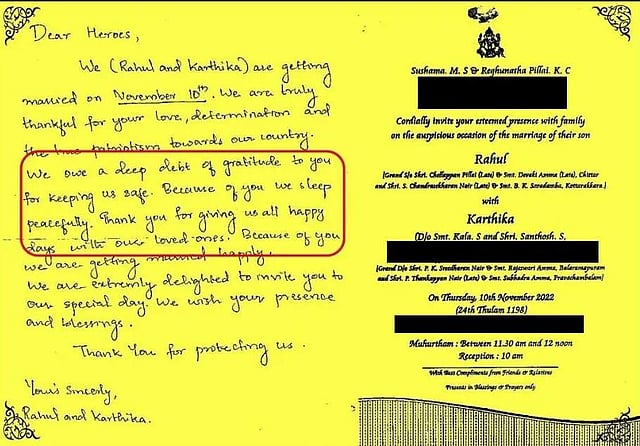 Dear Heroes,
We (Rahul and Karthika) are getting
married on November 10th. We are truly
thankful for your love, determination and
the true patriotism towards our country.
We owe a deep debt of gratitude to you
for keeping us safe. Because of you we sleep
peacefully. Thank you for giving us all happy
days with our loved ones. Because of you
we are getting married happily.
We are extremly delighted to invite you to
our special day. We wish your presence
and blessings.
Thank You for protecting us.
Your's Sincerly,
Rahul and Karthika.
Sushama. M. S & Reghunatha Pillai. K. C
Cordially invite your esteemed presence with family
on the auspicious occasion of the marriage of their son
Rahul
(Grand S/o Shri. Chellappan Pillai (Late) & Smt. Devaki Amma (Late), Chittar
and Shri. S. Chandrasekharan Nair (Late) & Smt. B. K. Saradamba, Kottarakkara.)
with
Karthika
(D/o Smt. Kala. S and Shri. Santhosh. S,
(Grand D/o Shri. P. K. Sreedharan Nair & Smt. Rajeswari Amma, Balaramapuram
and Shri. P. Thankappan Nair (Late) & Smt. Subhadra Amma, Pravachambalam)
On Thursday, 10th November 2022
(24th Thulam 1198)
Muhurtham : Between 11.30 am and 12 noon
Reception : 10 am
With Best Compliments from Friends & Relatives
Presents in Blessings & Prayers only